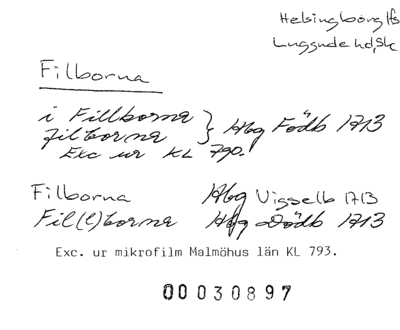 Helsingborg lfs
Luggude hd, Sk
Filborna
i Fillborna } Hbg Födb 1713
filborna
Exc ur KL 790.
Filborna Hbg Vigselb 1713
Fil(l)borna Hbg Dödb 1713
Exc. ur mikrofilm Malmöhus län KL 793.
00030897